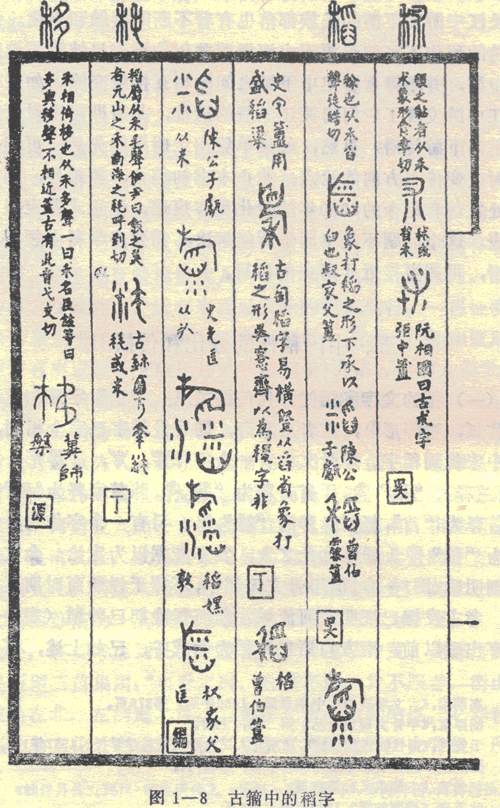 秫
稻
秏
移
稷之黏者从禾
术象形食聿切
秫或
省禾
阮相國曰古朮字
弡中簠
吴
稌也从禾舀
聲徒晧切
象打稻之形下承以
臼也叔家父簠
陳公
子甗
曾伯
霥簠
吴
史宂簠用
盛稻粱
古匋稻字易横竪从舀省象打
稻之形吴愙齋以為稷字非
丁
稻
曾伯簠
陳公子甗
从米
史宂匡
从㫃
稻嫘
敦
叔家父
匡
編
稻屬从禾毛聲伊尹曰飯之美
者元山之禾南海之秏呼到切
古鉥
秏或米
丁
禾相倚移也从禾多聲一曰禾名臣鉉等曰
多與移聲不相近蓋古有此音弋支切
冀師
盤
源
图 1—8 古籀中的稻字